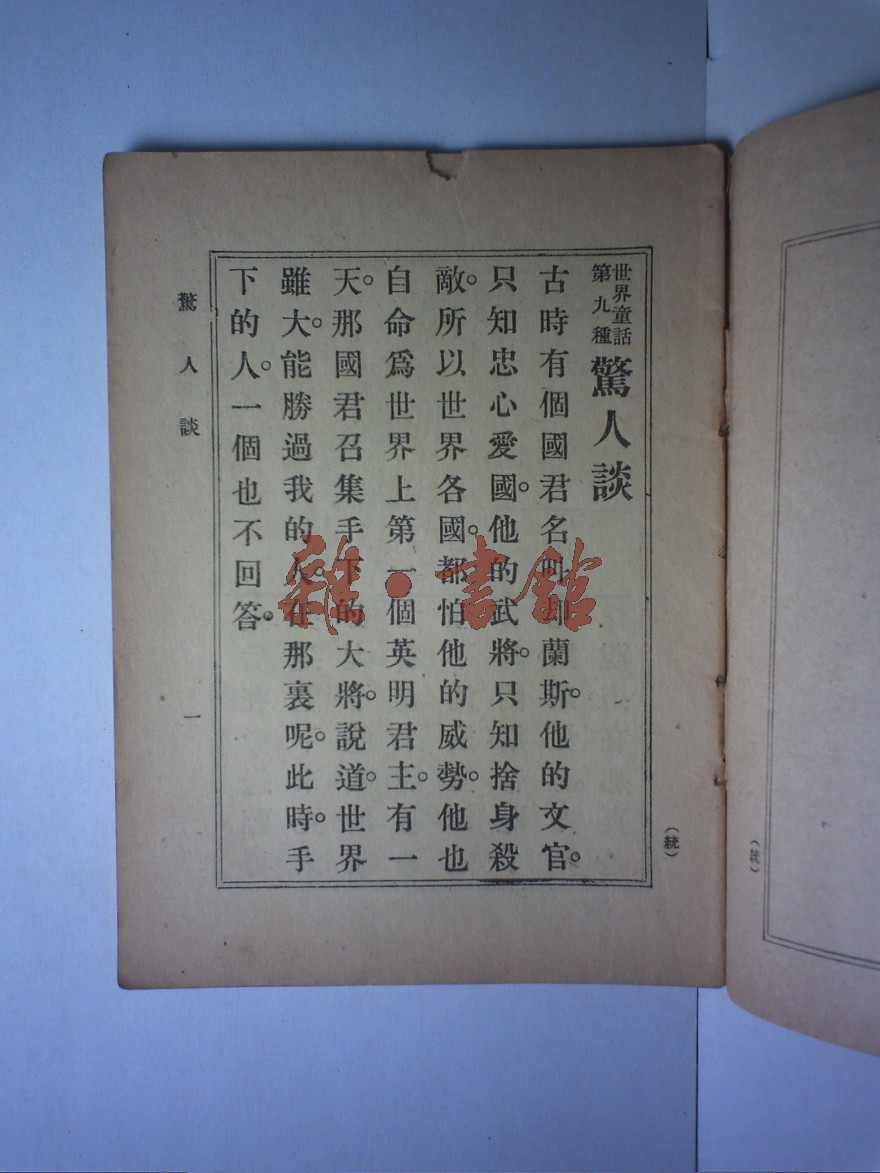 世界童話
第九種
驚人談
古時有個國君名叫却蘭斯。他的文官。
只知忠心愛國。他的武將。只知捨身殺
敵。所以世界各國。都怕他的威勢。他也
自命爲世界上第一個英明君主。有一
天。那國君召集手下的大將。說道。世界
雖大。能勝過我的人。在那裏呢。此時。手
下的人。一個也不回答。
驚人談
一
(統)
(統)
雜·書館